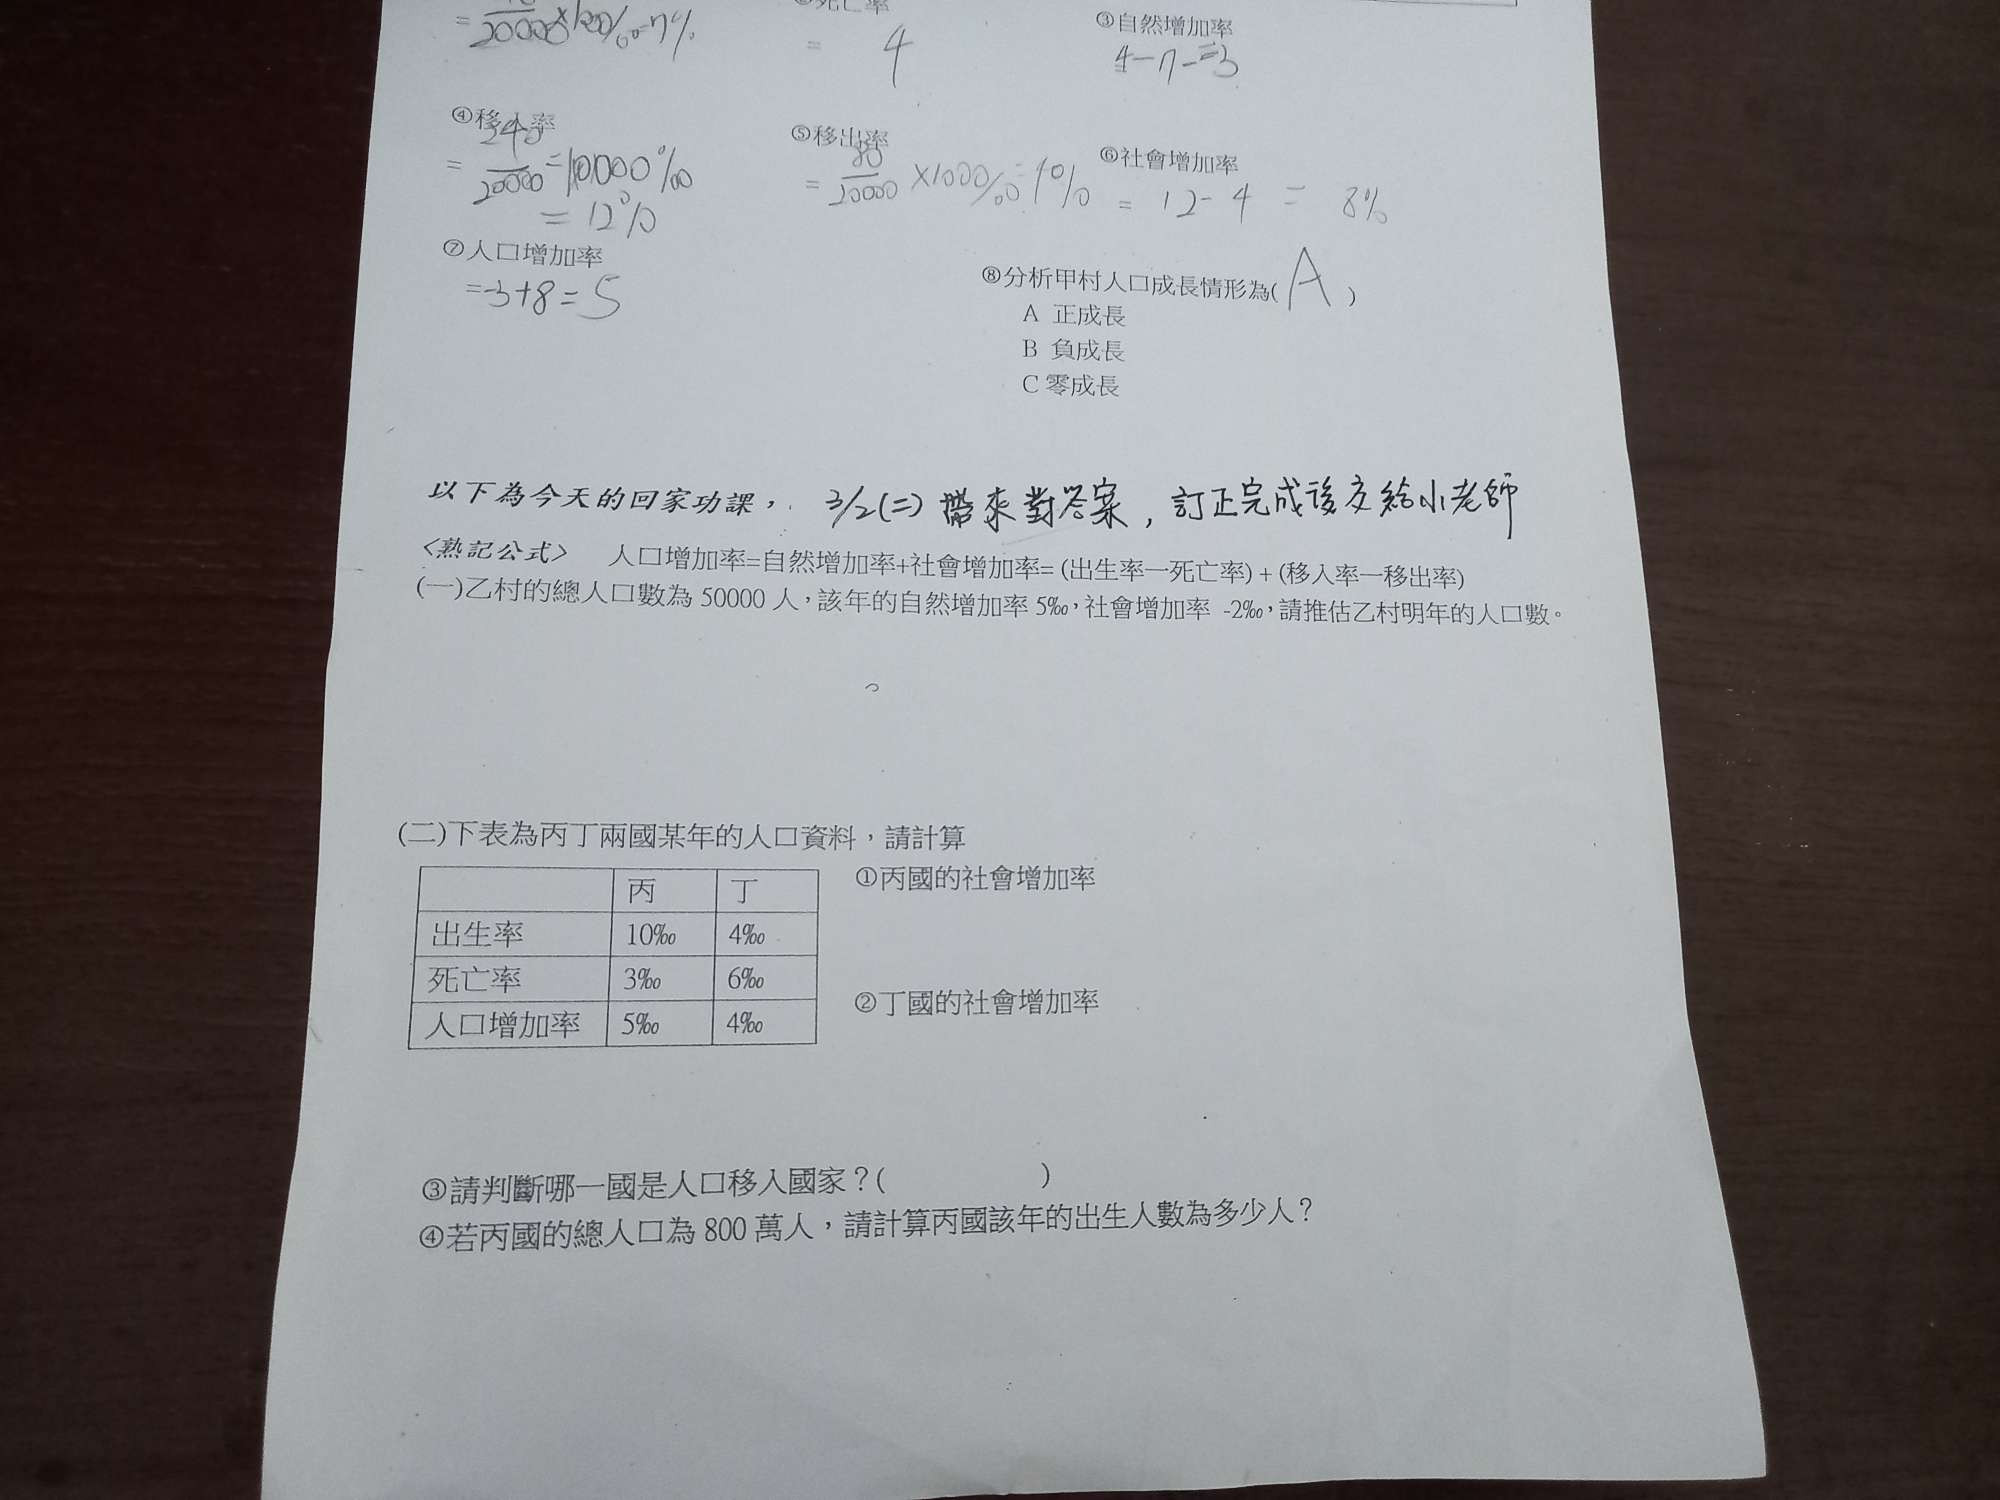 = /20000 ×1000‰=7%
②死亡率
= 4
③自然增加率
4-7=-3
④移入率
= 240/20000 = 10000‰
= 12%
⑤移出率
= 80/20000 ×1000‰=4%
⑥社會增加率
= 12-4 = 8%
⑦人口增加率
=-3+8=5
⑧分析甲村人口成長情形為( A )
A 正成長
B 負成長
C 零成長
以下為今天的回家功課， 3/2(二) 帶來對答案，訂正完成後交給小老師
<熟記公式> 人口增加率=自然增加率+社會增加率= (出生率－死亡率) + (移入率－移出率)
(一)乙村的總人口數為 50000 人，該年的自然增加率 5‰，社會增加率 -2‰，請推估乙村明年的人口數。
(二)下表為丙丁兩國某年的人口資料，請計算
丙 丁
出生率 10‰ 4‰
死亡率 3‰ 6‰
人口增加率 5‰ 4‰
①丙國的社會增加率
②丁國的社會增加率
③請判斷哪一國是人口移入國家？( )
④若丙國的總人口為 800 萬人，請計算丙國該年的出生人數為多少人？